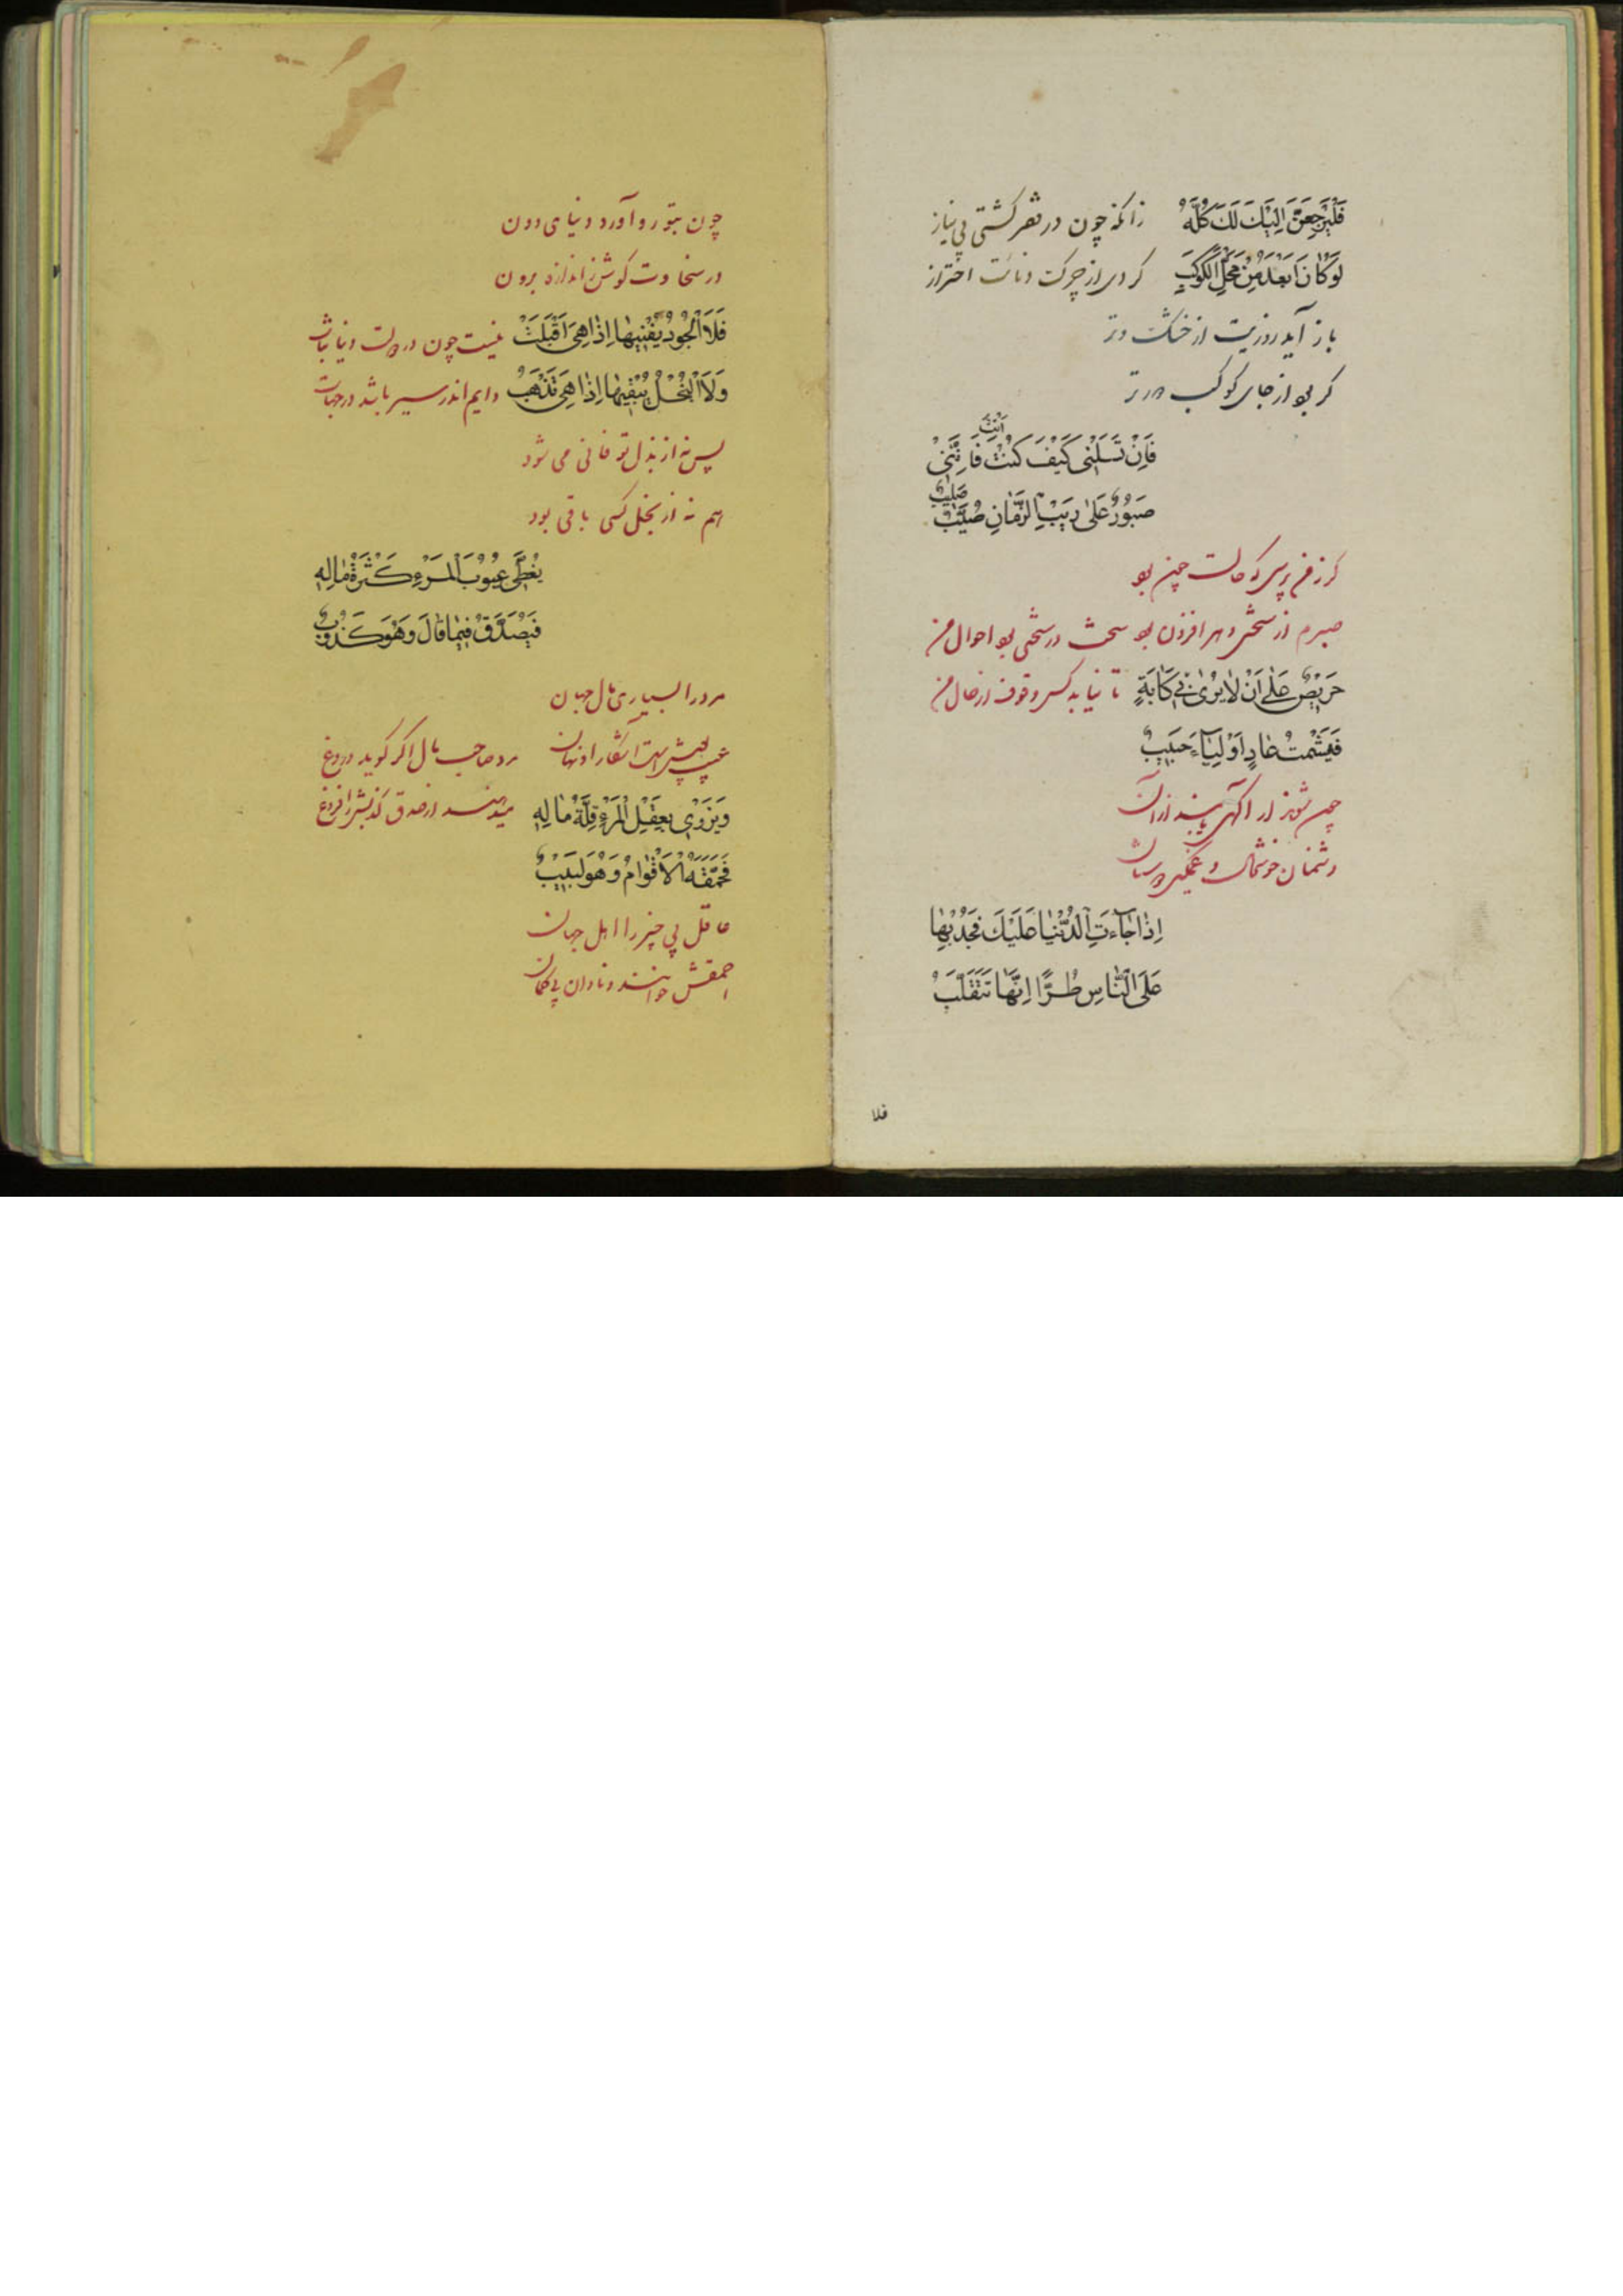 فَلَيَرْجِعَنَّ اِلَيْكَ لَكَ كُلُّهُ
زانکه چون در فقر کشتی بی نیاز
لَوْ كَانَ اَبْعَدَ مِنْ مَحَلِّ الْكَوْكَبِ
کردی از چرک دنائت احتراز
باز آید روزیت از خشک وتر
کر بود از جای کوکب دورتر
فَاِنْ تَسْئَلَنِّى كَيْفَ كُنْتَ فَاِنَّنِى
اَنْتَ
صَبُورٌ عَلٰى رَيْبِ الزَّمَانِ صَلِيبٌ
صَلِيبٌ
کر ز من پرسی که حالت چون بود
صبرم از سختی دهر افزون بود
سخت در سختی بود احوال من
حَرِيصٌ عَلٰى اَنْ لَا يُرٰى بِى كَابَةٌ
تا نیابد کس وقوف از حال من
فَيَشْمَتَ عَادٍ اَوْ يُسَاءَ حَبِيبٌ
چون شوند ار آکهی یابند از آن
دشمنان خوشحال و غمکین دوستان
اِذَا جَاءَتِ الدُّنْيَا عَلَيْكَ فَجُدْ بِهَا
عَلَى النَّاسِ طُرًّا اِنَّهَا تَتَقَلَّبُ
فلا
چون بتو رو آورد دنیای دون
در سخاوت کوش ز اندازه برون
فَلَا الْجُودُ يُفْنِيهَا اِذَا هِىَ اَقْبَلَتْ
نیست چون در دولت دنیا ثبات
وَلَا الْبُخْلُ يُبْقِيهَا اِذَا هِىَ تَذْهَبُ
دایم اندر سیر باشد در جهات
پس نه از بذل تو فانی می شود
هم نه از بخل کسی باقی بود
يُغَطِّى عُيُوبَ الْمَرْءِ كَثْرَةُ مَالِهِ
فَيُصَدَّقُ فِيمَا قَالَ وَهُوَ كَذُوبٌ
مرد را بسیاری مال جهان
عیب پوشش است آشکار او نهان
مرد صاحب مال اکر کوید دروغ
وَيُزْرِى بِعَقْلِ الْمَرْءِ قِلَّةُ مَالِهِ
میدهند از صدق کذبش را فروغ
فَحَمَّقَهُ الْاَقْوَامُ وَهُوَ لَبِيبٌ
عاقل بی چیز را اهل جهان
احمقش خوانند و نادان بی کمان